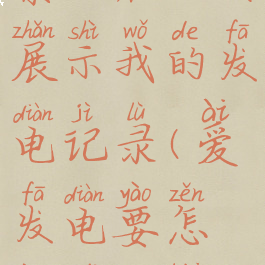 zhǎn shì wǒ de fā
展示我的发
diàn jì lù ài
电记录(爱
fā diàn yào zěn
发电要怎